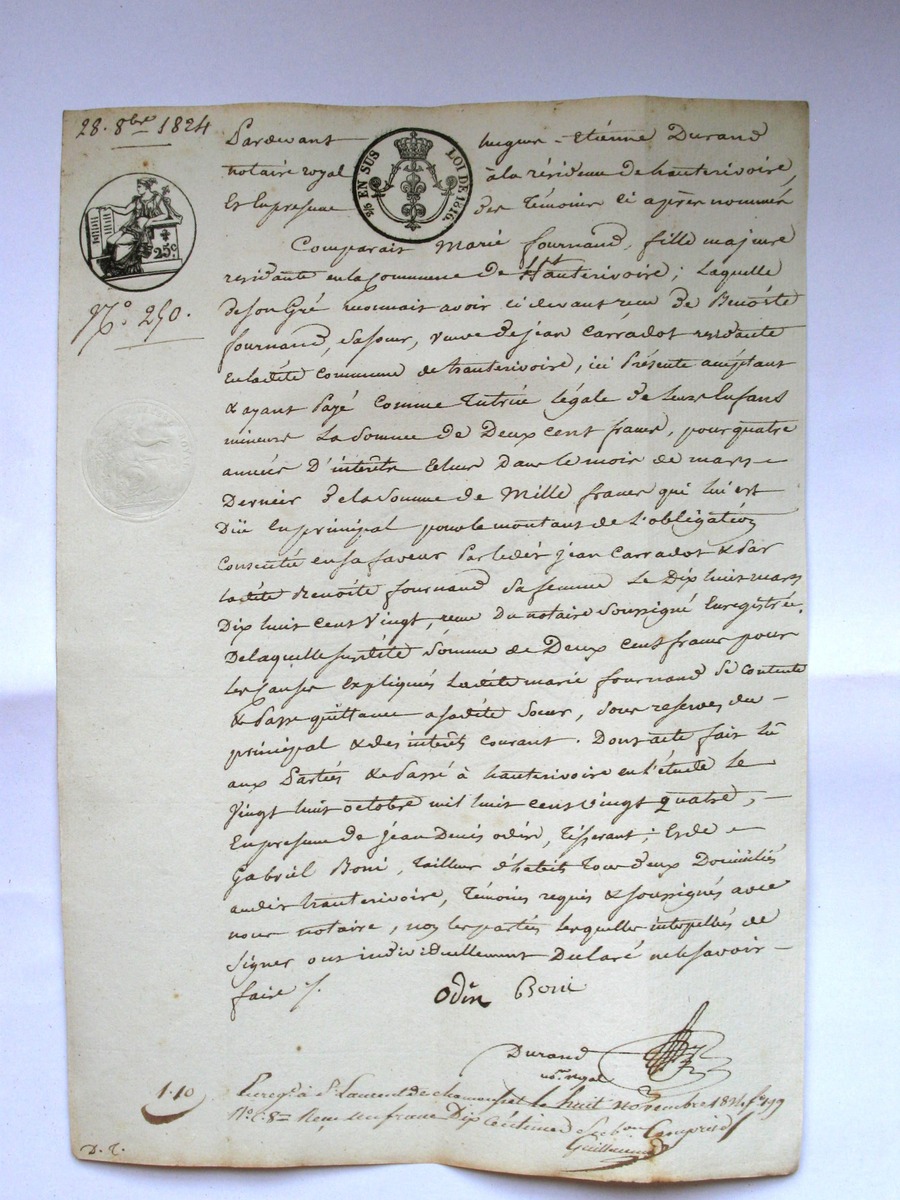 28. 8bre 1824
Pardevant hugues-Etienne Durand
notaire royal à la résidence de hauterivoire,
Et En presence des Témoins ci après nommés
EN SUS LOI DE 1816.
25c.
Comparait Marie fournand, fille majeure
residante en la Commune de hauterivoire; Laquelle
de son Gré reconnait avoir ci devant reçu de Benoite
N.o 250.
fournand, sa sœur, veuve de jean Carradot residante
En ladite commune de hauterivoire, ici Présente acceptant
& ayant Payé comme Tutrice légale de leurs Enfans
mineurs La Somme de Deux cent francs, pour quatre
années D'intérêts Echus Dans le mois de mars
Dernier de la Somme de Mille francs qui lui est
Düe En principal pour le montant de L'obligation
Consentie en sa faveur Par ledit jean Carradot & Par
ladite Benoite fournand sa femme Le Dix huit mars
Dix huit cent Vingt, reçue Du notaire Soussigné Enregistrée.
De laquelle susdite Somme de Deux cent francs pour
les Causes Expliqués Ladite marie fournand se contente
& Passe quittance a sadite Sœur, sous reserves du
principal & des intérêts courant. Dont acte fait lû
aux Parties & Passé à hauterivoire en l'étude le
Vingt huit octobre mil huit cent vingt quatre,
En presence de jean Denis odin, Tisserant; Et de
Gabriel Boni, Tailleur d'habits Tous deux Domiciliés
audit hauterivoire, Témoins requis & soussignés avec
nous notaire, non les parties lesquelles interpellés de
signer ont individuellement Déclaré ne le savoir
faire /.
odin Boni
Durand
no.re royal
1.10
Enreg.é à St Laurent de chamousset le huit novembre 1824 f.o
Reçu un franc Dix Centimes Compris
Guillermin
D. T.